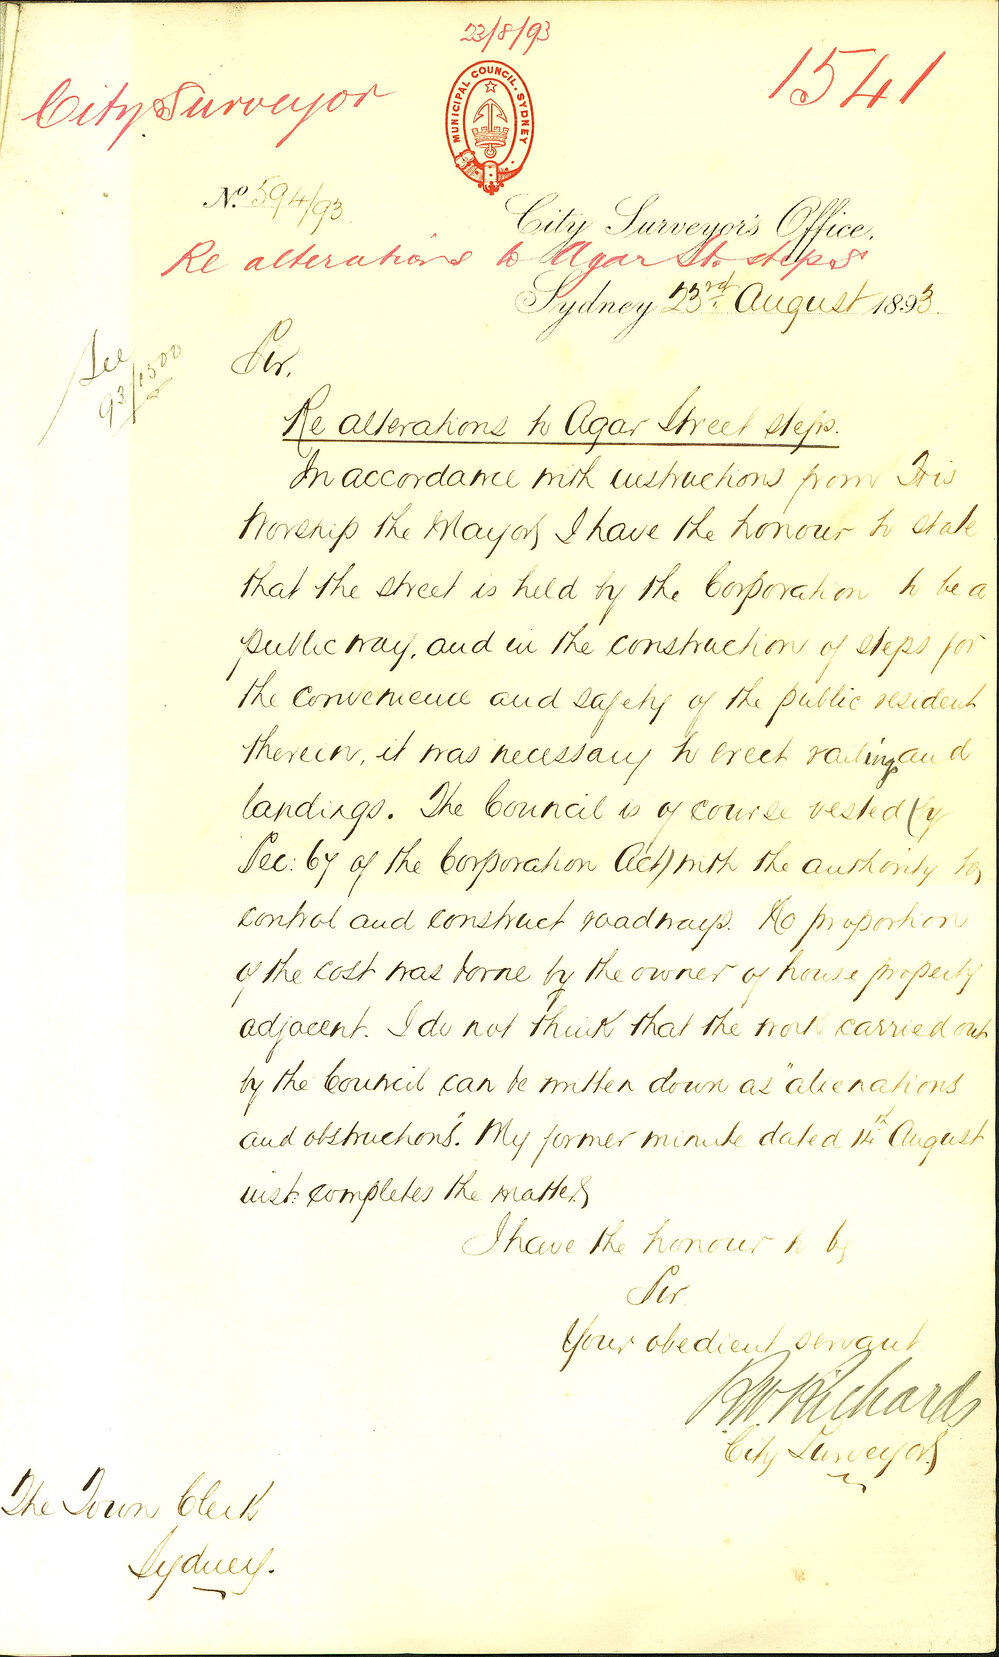 23/8/93
City Surveyor
1541
MUNICIPAL COUNCIL. SYDNEY
No. 594/93.
City Surveyor's Office,
Re alterations to Agar St. steps
Sydney 23rd August 1893.
See
93/1300
Sir,
Re alterations to Agar Street steps.
In accordance with instructions from His
Worship the Mayor, I have the honour to state
that the street is held by the Corporation to be a
public way, and in the construction of steps for
the convenience and safety of the public resident
therein, it was necessary to erect railing and
landings. The Council is of course vested (by
Sec: 67 of the Corporation Act) with the authority to
control and construct roadways. No proportion
of the cost was borne by the owner of house property
adjacent. I do not think that the work carried out
by the Council can be written down as "alienations
and obstructions". My former minute dated 14th August
inst: completes the matter,
I have the honour to be
Sir
Your obedient servant
R.W. Richards
City Surveyor,
The Town Clerk
Sydney.